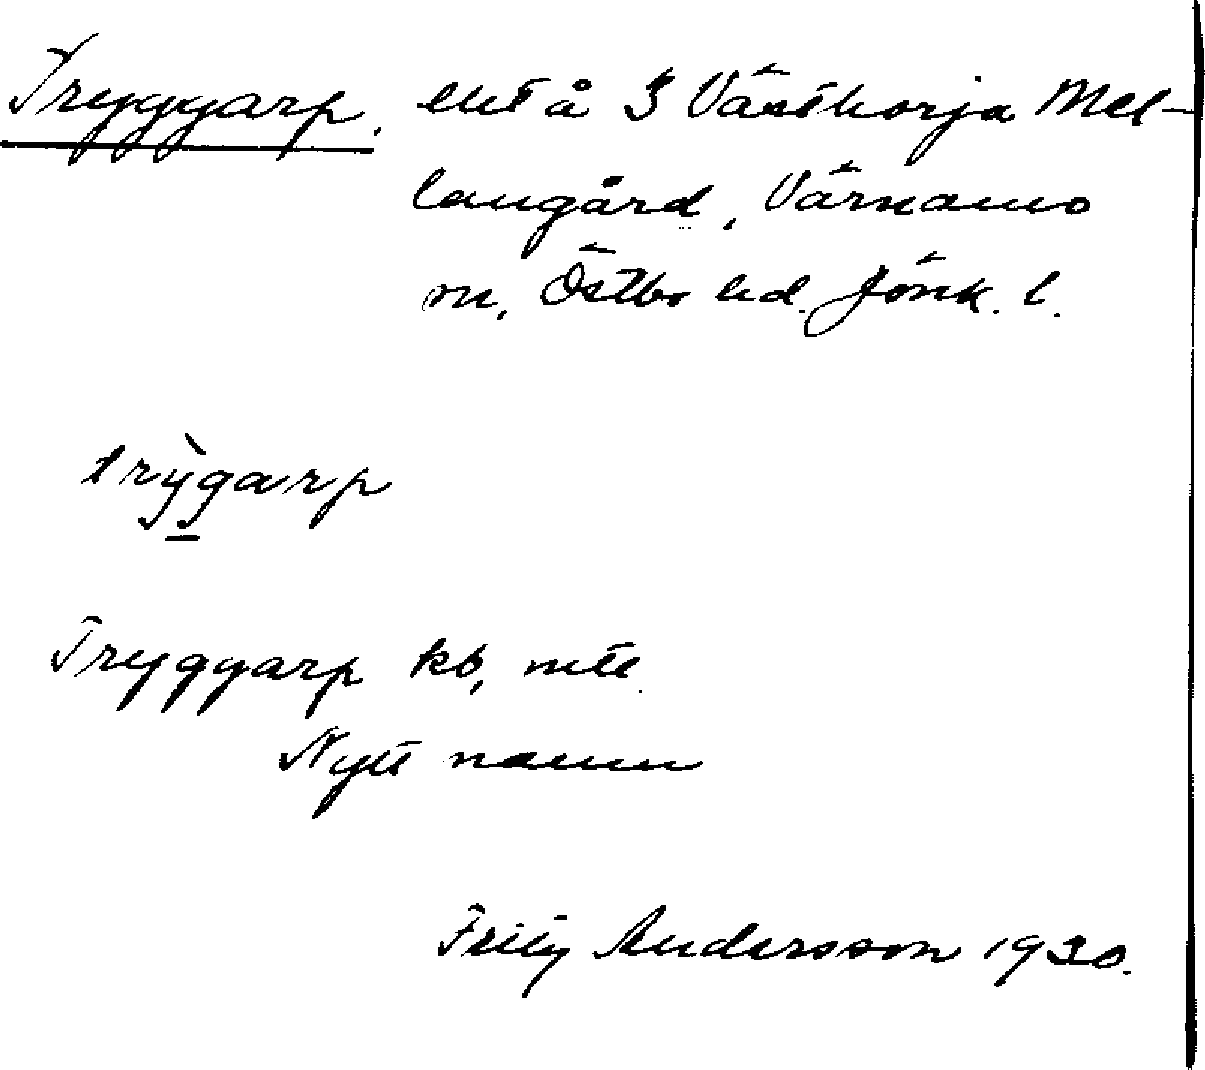 Tryggarp. lht å 3 Västhorja Mel-
langård, Värnamo
sn, Östbo hd. Jönk. l.
trỳgarp
Tryggarp kb, mtl.
Nytt namn
Fritz Andersson 1930.